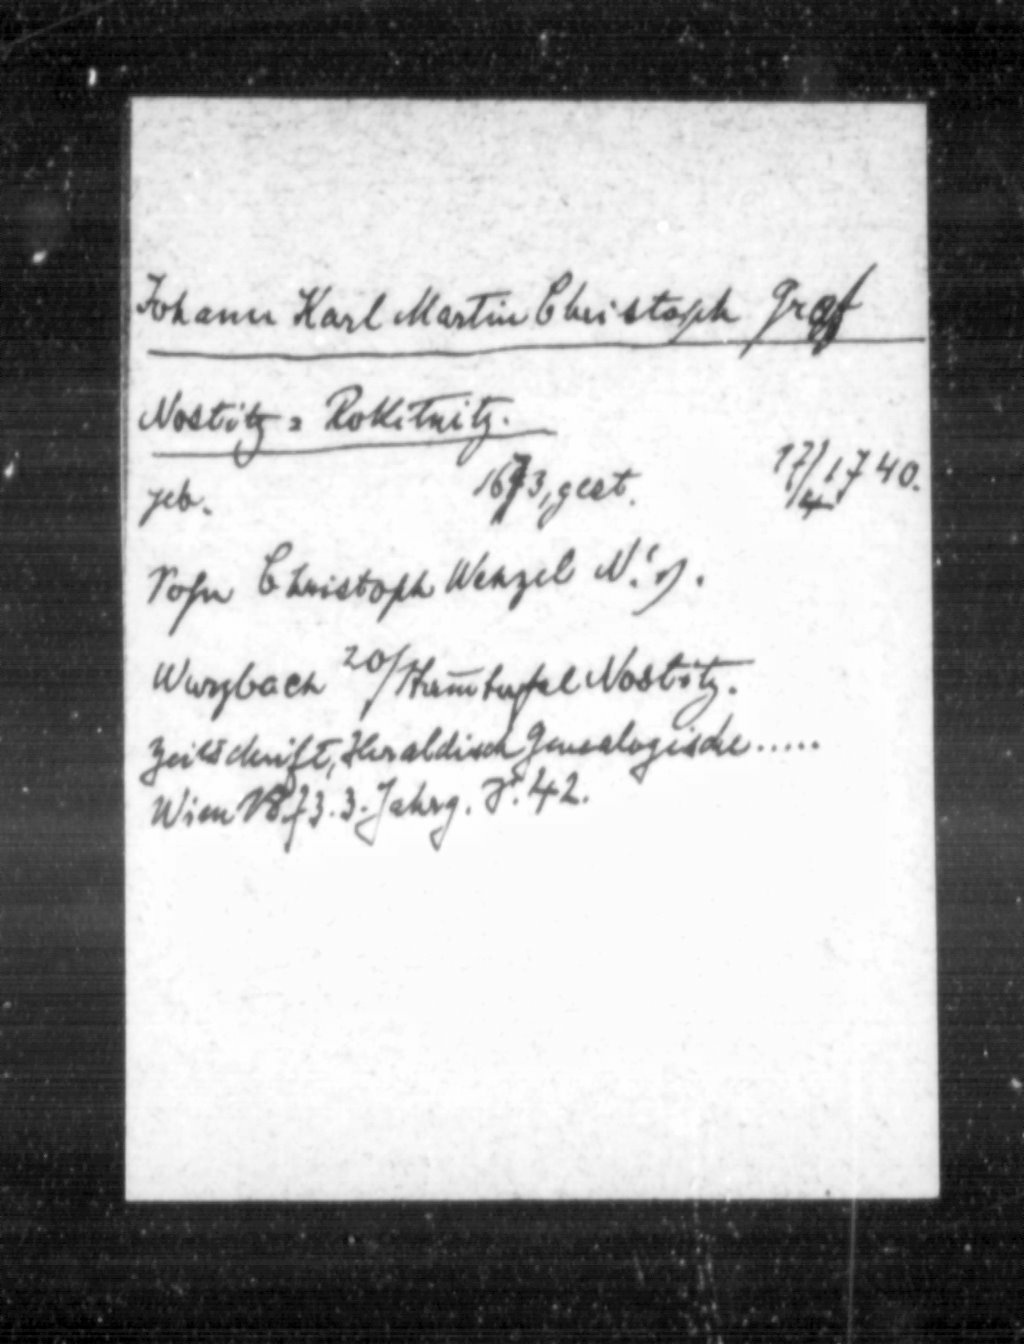 Johann Karl Martin Christoph Graf
Nostitz = Rokitnitz.
geb. 1673, gest. 17/4 1740.
Sohn Christoph Wenzel N.'s.
Wurzbach 20/Stam̅tafel Nostitz.
Zeitschrift, Heraldisch Genealogische.....
Wien 1873. 3. Jahrg. S. 42.